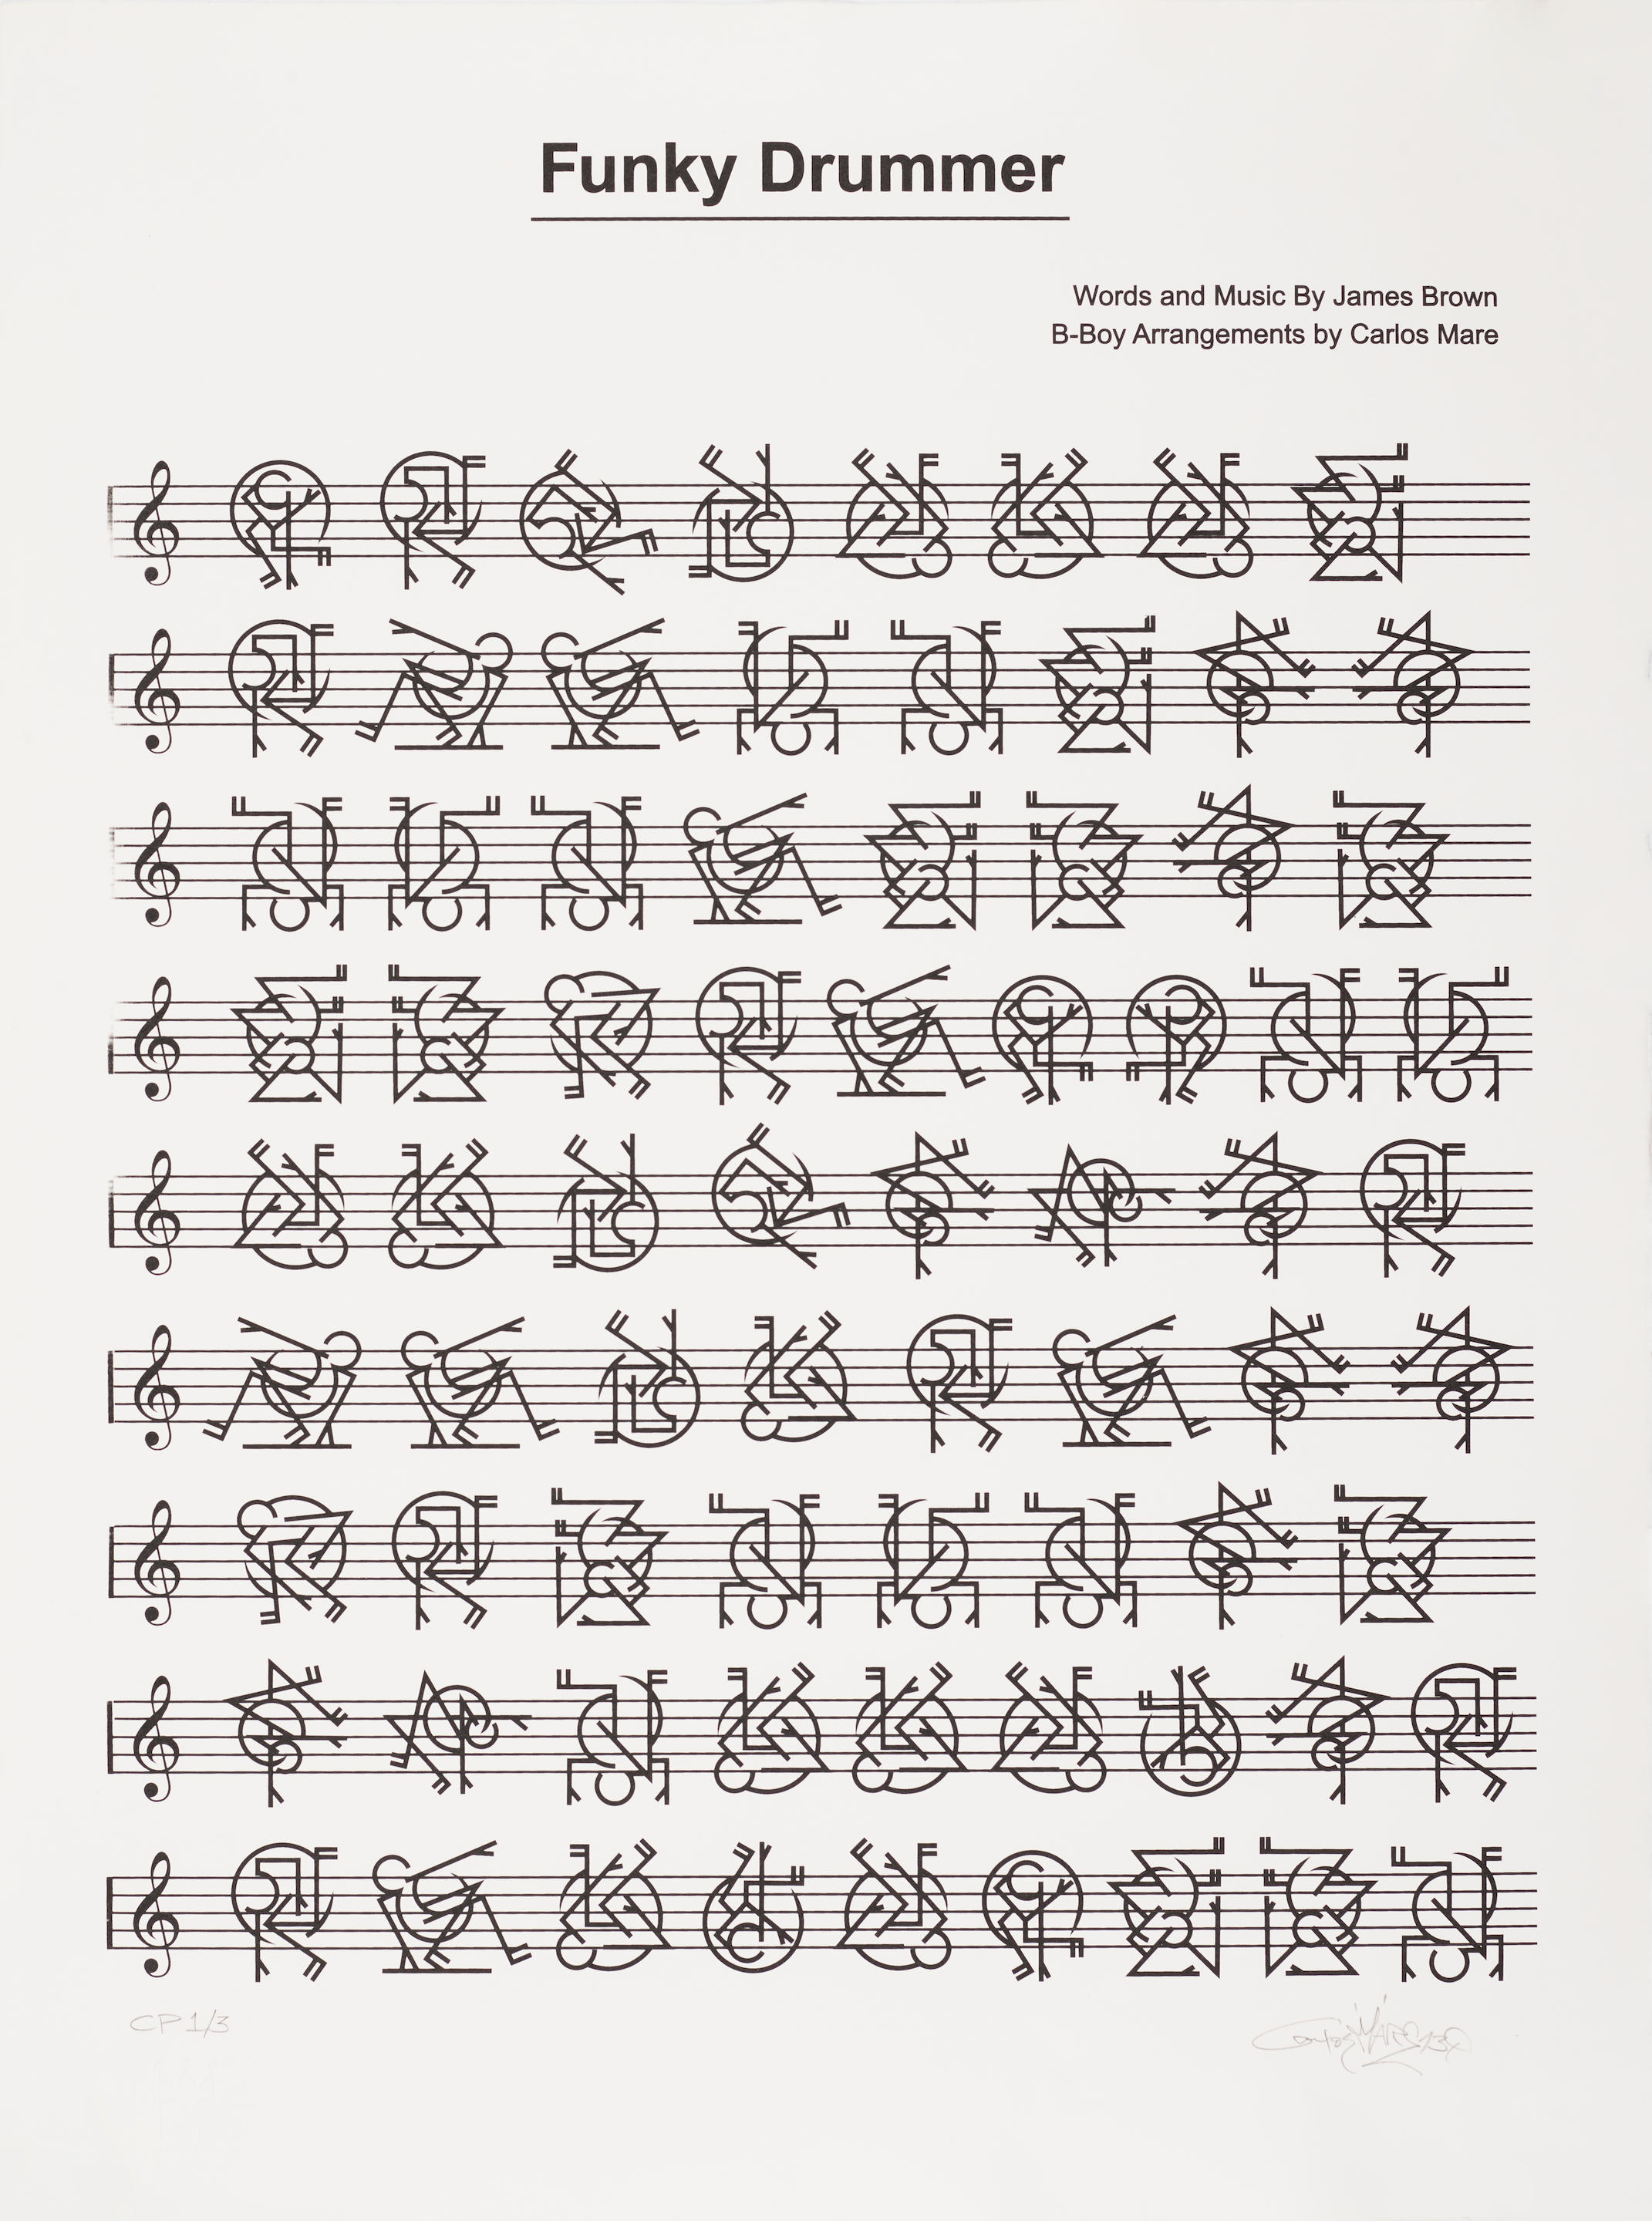 Funky Drummer
Words and Music By James Brown
B-Boy Arrangements by Carlos Mare
CP 1/3